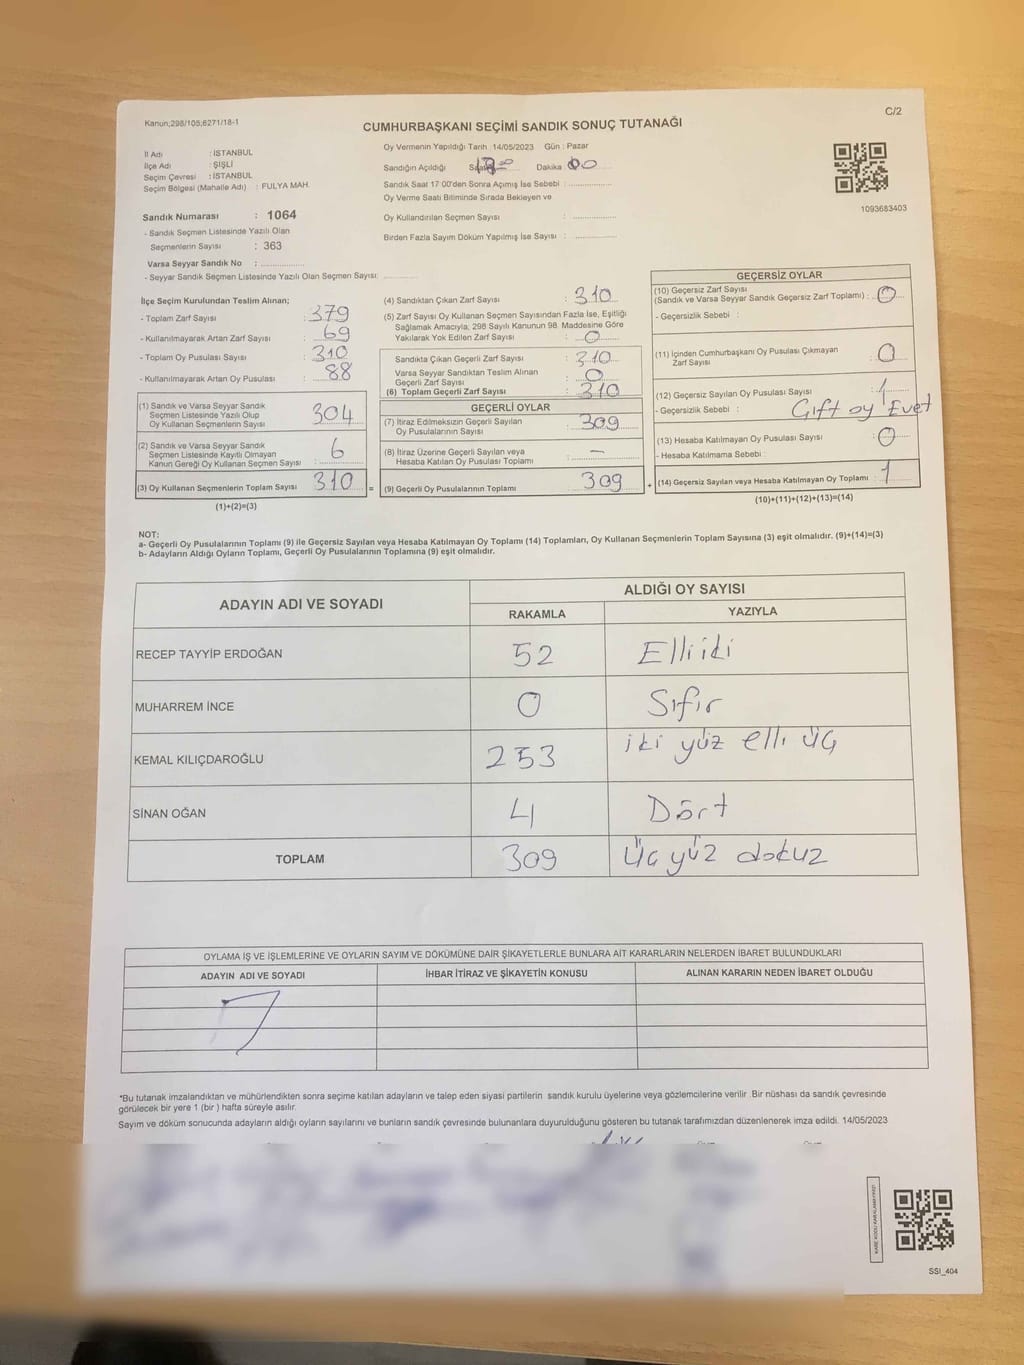 Kanun;298/105,6271/18-1
C/2
CUMHURBAŞKANI SEÇİMİ SANDIK SONUÇ TUTANAĞI
İl Adı : İSTANBUL
İlçe Adı : ŞİŞLİ
Seçim Çevresi : İSTANBUL
Seçim Bölgesi (Mahalle Adı) : FULYA MAH.
Sandık Numarası : 1064
- Sandık Seçmen Listesinde Yazılı Olan
Seçmenlerin Sayısı : 363
Varsa Seyyar Sandık No :
- Seyyar Sandık Seçmen Listesinde Yazılı Olan Seçmen Sayısı:
Oy Vermenin Yapıldığı Tarih 14/05/2023 Gün : Pazar
Sandığın Açıldığı Dakika 00
Sandık Saat 17:00'den Sonra Açımış İse Sebebi :
Oy Verme Saati Biliminde Sırada Bekleyen ve
Oy Kullandırılan Seçmen Sayısı :
Birden Fazla Sayım Döküm Yapılmış İse Sayısı :
1093683403
İlçe Seçim Kurulundan Teslim Alınan;
- Toplam Zarf Sayısı : 379
- Kullanılmayarak Artan Zarf Sayısı : 69
- Toplam Oy Pusulası Sayısı : 310
- Kullanılmayarak Artan Oy Pusulası : 88
(1) Sandık ve Varsa Seyyar Sandık
Seçmen Listesinde Yazılı Olup
Oy Kullanan Seçmenlerin Sayısı 304
(2) Sandık ve Varsa Seyyar Sandık
Seçmen Listesinde Kayıtlı Olmayan
Kanun Gereği Oy Kullanan Seçmen Sayısı : 6
(3) Oy Kullanan Seçmenlerin Toplam Sayısı 310 =
(1)+(2)=(3)
(4) Sandıktan Çıkan Zarf Sayısı : 310
(5) Zarf Sayısı Oy Kullanan Seçmen Sayısından Fazla İse, Eşitliği
Sağlamak Amacıyla, 298 Sayılı Kanunun 98. Maddesine Göre
Yakılarak Yok Edilen Zarf Sayısı : 0
Sandıkta Çıkan Geçerli Zarf Sayısı : 310
Varsa Seyyar Sandıktan Teslim Alınan
Geçerli Zarf Sayısı : 0
(6) Toplam Geçerli Zarf Sayısı : 310
GEÇERLİ OYLAR
(7) İtiraz Edilmeksizin Geçerli Sayılan
Oy Pusulalarının Sayısı : 309
(8) İtiraz Üzerine Geçerli Sayılan veya
Hesaba Katılan Oy Pusulası Toplamı : —
(9) Geçerli Oy Pusulalarının Toplamı 309 +
GEÇERSİZ OYLAR
(10) Geçersiz Zarf Sayısı
(Sandık ve Varsa Seyyar Sandık Geçersiz Zarf Toplamı) : 0
- Geçersizlik Sebebi :
(11) İçinden Cumhurbaşkanı Oy Pusulası Çıkmayan
Zarf Sayısı 0
(12) Geçersiz Sayılan Oy Pusulası Sayısı : 1
- Geçersizlik Sebebi : Çift oy Evet
(13) Hesaba Katılmayan Oy Pusulası Sayısı : 0
- Hesaba Katılmama Sebebi :
(14) Geçersiz Sayılan veya Hesaba Katılmayan Oy Toplamı : 1
(10)+(11)+(12)+(13)=(14)
NOT:
a- Geçerli Oy Pusulalarının Toplamı (9) ile Geçersiz Sayılan veya Hesaba Katılmayan Oy Toplamı (14) Toplamları, Oy Kullanan Seçmenlerin Toplam Sayısına (3) eşit olmalıdır. (9)+(14)=(3)
b- Adayların Aldığı Oyların Toplamı, Geçerli Oy Pusulalarının Toplamına (9) eşit olmalıdır.
ADAYIN ADI VE SOYADI
ALDIĞI OY SAYISI
RAKAMLA YAZIYLA
RECEP TAYYİP ERDOĞAN 52 Elli iki
MUHARREM İNCE 0 Sıfır
KEMAL KILIÇDAROĞLU 253 iki yüz elli üç
SİNAN OĞAN 4 Dört
TOPLAM 309 Üç yüz dokuz
OYLAMA İŞ VE İŞLEMLERİNE VE OYLARIN SAYIM VE DÖKÜMÜNE DAİR ŞİKAYETLERLE BUNLARA AİT KARARLARIN NELERDEN İBARET BULUNDUKLARI
ADAYIN ADI VE SOYADI İHBAR İTİRAZ VE ŞİKAYETİN KONUSU ALINAN KARARIN NEDEN İBARET OLDUĞU
*Bu tutanak imzalandıktan ve mühürlendikten sonra seçime katılan adayların ve talep eden siyasi partilerin sandık kurulu üyelerine veya gözlemcilerine verilir .Bir nüshası da sandık çevresinde
görülecek bir yere 1 (bir ) hafta süreyle asılır.
Sayım ve döküm sonucunda adayların aldığı oyların sayılarını ve bunların sandık çevresinde bulunanlara duyurulduğunu gösteren bu tutanak tarafımızdan düzenlenerek imza edildi. 14/05/2023
SSI_404